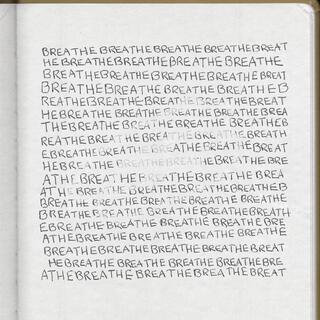 BREATHE BREATHEBREATHEBREATHEBREAT
HEBREATHEBREATHEBREATHEBREATHE
BREATHEBREATHEBREATHEBREATHEBREAT
BREATHEBREATHEBREATHEBREATHEB
REATHEBREATHEBREATHEBREATHEBREAT
HEBREATHEBREATHEBREATHEBREATHEBREA
THEBREATHEBREATHEBREATHEBREATHEBREA
REATHEBREATHEBREATHEBREATHEBREATH
EBREATHEBREATHEBREATHEBREATHEBREAT
HEBREATHEBREATHEBREATHEBREATHEBRE
ATHEBREATHEBREATHEBREATHEBREA
ATHEBREATHEBREATHEBREATHEBREATHEB
BREATHEBREATHEBREATHEBREATHEBRE
BREATHEBREATHEBREATHEBREATHEBREATH
EBREATHEBREATHEBREATHEBREATHEBRE
ATHEBREATHEBREATHEBREATHEBREATHE
BREATHEBREATHEBREATHEBREATHEBREAT
HEBREATHEBREATHEBREATHEBREATHEBRE
ATHEBREATHEBREATHEBREATHEBREAT